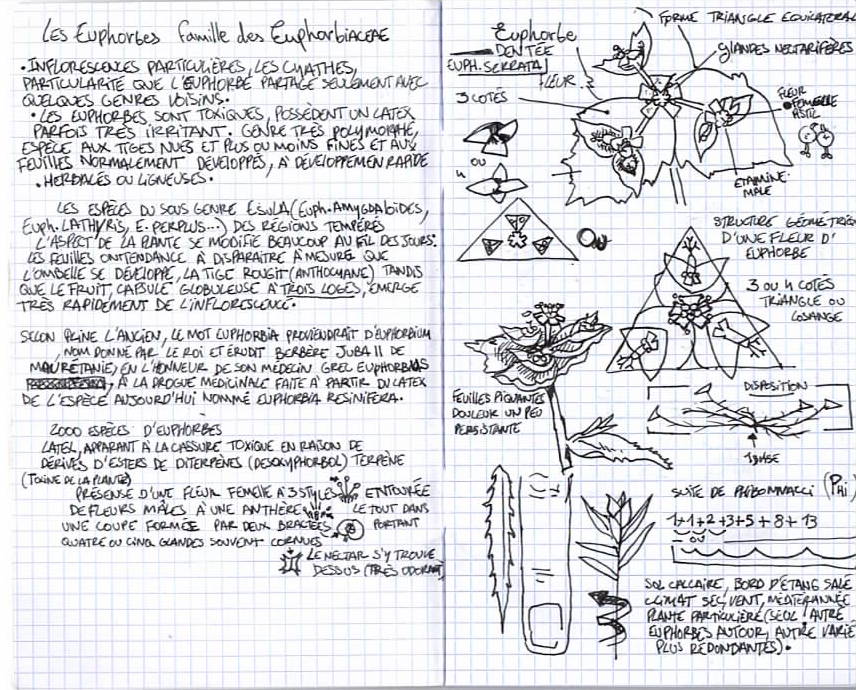 Les Euphorbes famille des EuphorbiACEAE
• INFLORESCENCES PARTICULIÈRES, LES CYATHES,
PARTICULARITÉ QUE L'EUPHORBE PARTAGE SEULEMENT AVEC
QUELQUES GENRES VOISINS.
• LES EUPHORBES, SONT TOXIQUES, POSSÈDENT UN LATEX
PARFOIS TRÈS IRRITANT. GENRE TRÈS POLYMORPHE,
ESPÈCE AUX TIGES NUES ET PLUS OU MOINS FINES ET AUX
FEUILLES NORMALEMENT DÉVELOPPÉS, À DÉVELOPPEMEN RAPIDE
• HERBACÉS OU LIGNEUSES •
LES ESPÈCES DU SOUS GENRE ESULA (EUPH. AMYGDALOÏDES,
EUPH. LATHYRIS, E. PERPLUS...) DES RÉGIONS TEMPÉRÉS
L'ASPECT DE LA PLANTE SE MODIFIE BEAUCOUP AU FIL DES JOURS:
LES FEUILLES ONT TENDANCE À DISPARAITRE À MESURE QUE
L'OMBELLE SE DÉVELOPPE, LA TIGE ROUGIT (ANTHOCYANE) TANDIS
QUE LE FRUIT, CAPSULE GLOBULEUSE À TROIS LOGES, ÉMERGE
TRÈS RAPIDEMENT DE L'INFLORESCENCE.
SELON PLINE L'ANCIEN, LE MOT EUPHORBIA PROVIENDRAIT D'EUPHORBIUM
NOM DONNÉ PAR LE ROI ET ÉRUDIT BERBÈRE JUBA II DE
MAURÉTANIE, EN L'HONNEUR DE SON MÉDECIN GREC EUPHORBUS
, À LA DROGUE MEDICINALE FAITE À PARTIR DU LATEX
DE L'ESPÈCE AUJOURD'HUI NOMMÉ EUPHORBIA RESINIFERA.
2000 ESPÈCES D'EUPHORBES
LATEX, APPARANT À LA CASSURE TOXIQUE EN RAISON DE
DÉRIVÉS D'ESTERS DE DITERPÈNES (DESOXYPHORBOL) TERPÈNE
(TOXINE DE LA PLANTE)
PRÉSENSE D'UNE FLEUR FEMELLE À 3 STYLES ENTOURÉE
DE FLEURS MÂLES À UNE ANTHÈRE LE TOUT DANS
UNE COUPE FORMÉE PAR DEUX BRACTÉES PORTANT
QUATRE OU CINQ GLANDES SOUVENT CORNUES
LE NECTAR S'Y TROUVE
DESSUS (TRÈS ODORANT)
Euphorbe
DENTÉE
EUPH. SERRATA
FLEUR
3 COTÉS
OU
4
FORME TRIANGLE EQUILATÉRAL
GLANDES NECTARIFÈRES
FLEUR
FEMELLE
PISTIL
ETAMINE
MALE
OU
STRUCTURE GÉOMÉTRIQ
D'UNE FLEUR D'
EUPHORBE
3 OU 4 COTÉS
TRIANGLE OU
LOSANGE
FEUILLES PIQUANTES
DOULEUR UN PEU
PERSISTANTE
DISPOSITION
SUITE DE FHIBONNACCI (Phi)
1+1+2+3+5+8+13
OU
SOL CALCAIRE, BORD D'ÉTANG SALÉ
CLIMAT SEC, VENT, MÉDITERANNÉE
PLANTE PARTICULIÈRE (SEUL, AUTRE
EUPHORBES AUTOUR, AUTRE VARIÉ
PLUS REDONDANTES).